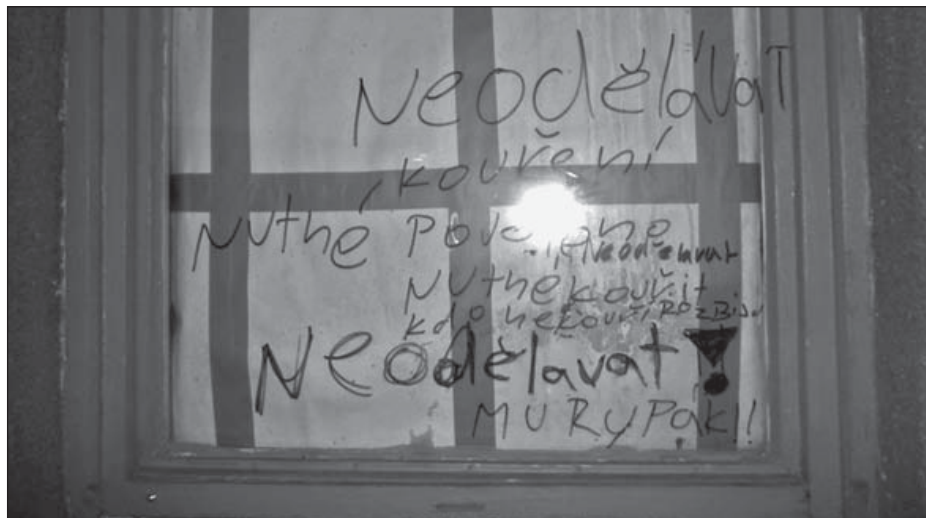 NeodělávaT
kouření
Nuthé povoleno
Neodělavat
Nuthé kouřit
kdo nekouří ROZBIJU
Neodělavat!
MU RyPák!!